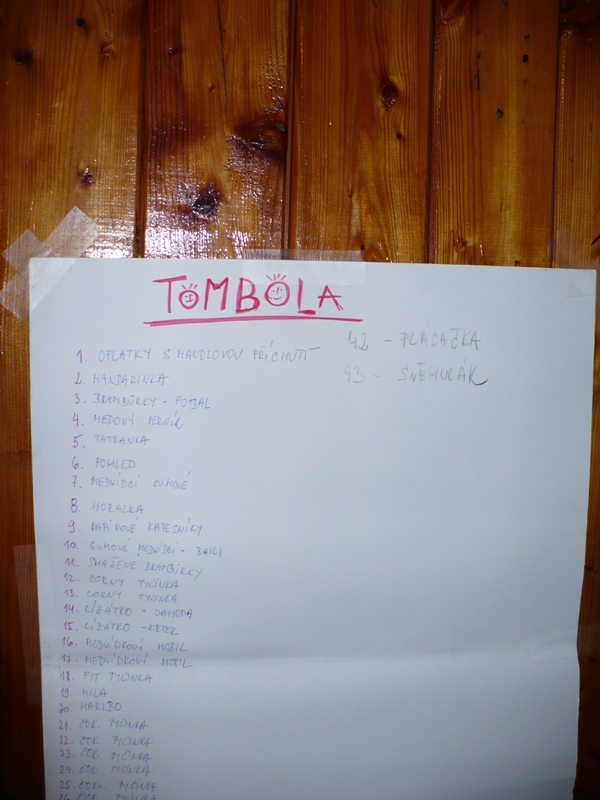 TOMBOLA
1. OPLATKY S MANDLOVOU PŘÍCHUTÍ
2. MANDARINKA
3. BRAMBŮRKY - FOTBAL
4. MEDOVÝ PERNÍK
5. TATRANKA
6. POHLED
7. MEDVÍDCI GUMOVÉ
8. HORALKA
9. PAPÍROVÉ KAPESNÍKY
10. GUMOVÉ MEDVÍDCI -
11. SMAŽENÉ BRAMBŮRKY
12. CORNY TYČINKA
13. CORNY TYČINKA
14. LÍZÁTKO - JAHODA
15. LÍZÁTKO - KRTEK
16. MEDVÍDKOVÝ MOBIL
17. MEDVÍDKOVÝ MOBIL
18. FIT TYČINKA
19. MILA
20. HARIBO
21 ČOK. TYČINKA
22. ČOK. TYČINKA
23. ČOK. TYČINKA
24. ČOK. TYČINKA
25. ČOK. TYČINKA
26. ČOK. TYČINKA
42 - PLÁCAČKA
43 - SNĚHULÁK